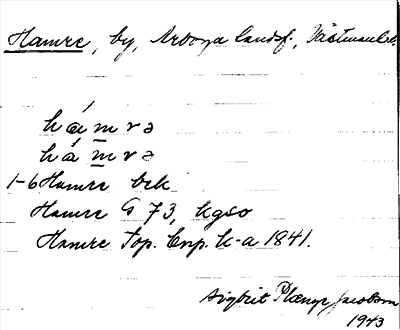 Hamre, by, Arboga landsf., Västmanl.
hámrə
hámrə
1-6 Hamre bck
Hamre G 73, kgso
Hamre Top. Enp. k-a 1841.
Sigbrit Plænge Jacobson
1943